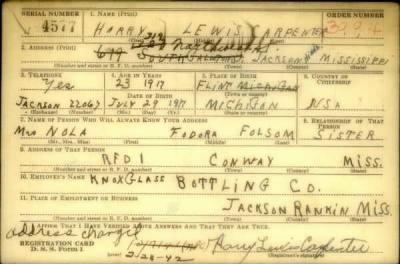 SERIAL NUMBER 1. NAME (Print) ORDER NUMBER
4577 HARRY LEWIS CARPENTER
(First) (Middle) (Last)
2. ADDRESS (Print)
JACKSON MISSISSIPPI
(Number and street or R. F. D. number) (Town) (County) (State)
3. TELEPHONE 4. AGE IN YEARS 5. PLACE OF BIRTH 6. COUNTRY OF CITIZENSHIP
Yes 23 FLINT MICHIGAN
DATE OF BIRTH (Town or county)
JACKSON 22063 JULY 29 1917 MICHIGAN USA
(Exchange) (Number) (Mo.) (Day) (Yr.) (State or country)
7. NAME OF PERSON WHO WILL ALWAYS KNOW YOUR ADDRESS 8. RELATIONSHIP OF THAT PERSON
Mrs NOLA FODORA FOLSOM SISTER
(Mr., Mrs., Miss) (First) (Middle) (Last)
9. ADDRESS OF THAT PERSON
RFD 1 CONWAY MISS.
(Number and street or R. F. D. number) (Town) (County) (State)
10. EMPLOYER'S NAME
KNOX GLASS BOTTLING CO.
11. PLACE OF EMPLOYMENT OR BUSINESS
JACKSON RANKIN MISS.
(Number and street or R. F. D. number) (Town) (County) (State)
I AFFIRM THAT I HAVE VERIFIED ABOVE ANSWERS AND THAT THEY ARE TRUE.
address changed
REGISTRATION CARD
D. S. S. FORM 1 2-28-42 Harry Lewis Carpenter